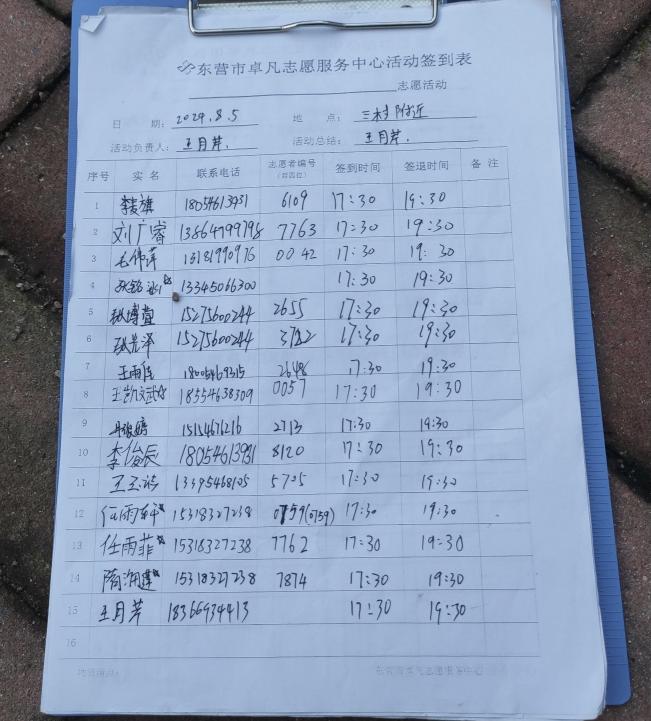 东营市卓凡志愿服务中心活动签到表
志愿活动
日 期: 2024.8.5 地 点: 附近
活动负责人: 王月芹. 活动总结: 王月芹.
序号 实名 联系电话 志愿者编号 签到时间 签退时间 备注
(后四位)
1 李旗 18054613931 6109 17:30 19:30
2 刘广睿 13864799798 7763 17:30 19:30
3 毛伟萍 13181990976 0042 17:30 19:30
4 13345066300 17:30 19:30
5 张博萱 15275600244 2655 17:30 19:30
6 张光泽 15275600244 17:30 19:30
7 王雨 18005469315 2648 17:30 19:30
8 王凯文 18554638309 0057 17:30 19:30
9 15154671216 2713 17:30 19:30
10 李俊辰 18054613931 8120 17:30 19:30
11 王玉 13395468105 5705 17:30 19:30
12 任雨轩 15318327238 0759(0759) 17:30 19:30
13 任雨菲 15318327238 7762 17:30 19:30
14 隋海莲 15318327238 7874 17:30 19:30
15 王月芹 18366934413 17:30 19:30
16
东营市卓凡志愿服务中心